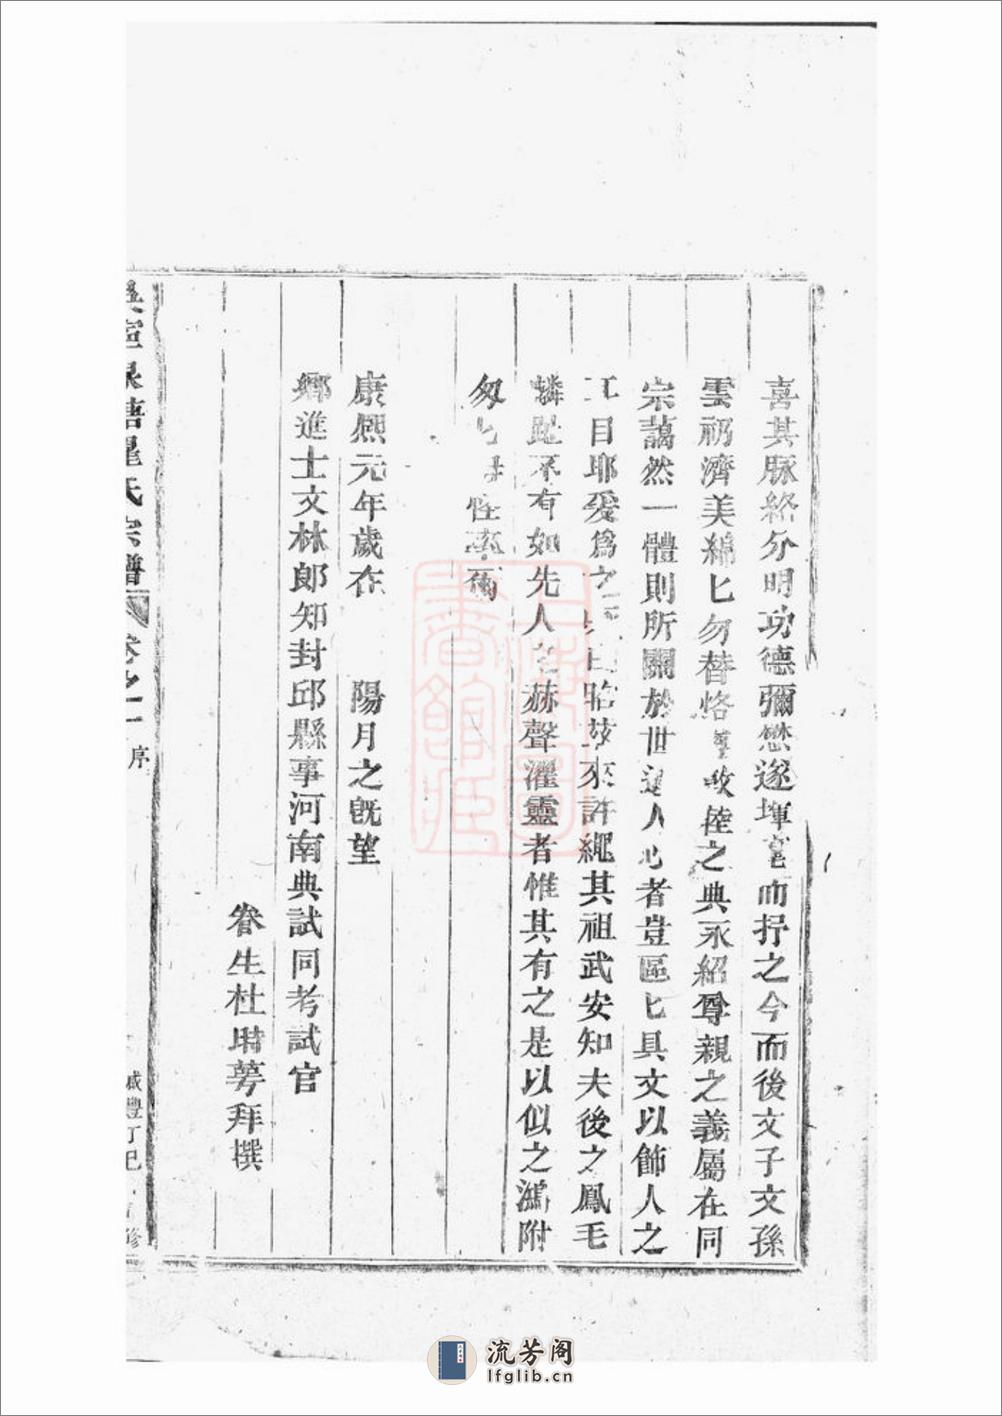 喜其脉絡分明功德彌懋遂揮毫而抒之今而後文子文孫
雲礽濟美綿匕勿替恪敦睦之典永紹尊親之義屬在同
宗藹然一體則所關於世道人心者豈區匕具文以飾人之
耳目耶爰爲之昭茲來許繩其祖武安知夫後之鳳毛
麟趾不有如先人之赫聲濯靈者惟其有之是以似之鴻附
匆匕
康熙元年歲在 陽月之旣望
鄉進士文林郞知封邱縣事河南典試同考試官
眷生杜時蕚拜撰
塘 氏宗譜 卷之一 序
咸豐丁巳 修
上海圖書館藏
流芳阁
lfglib.cn